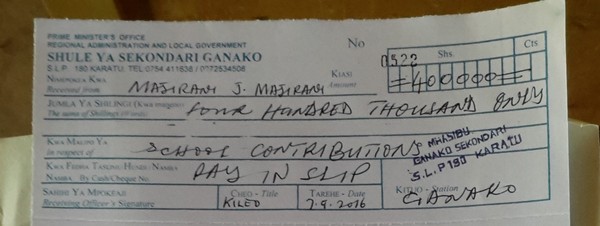 PRIME MINISTER'S OFFICE
REGIONAL ADMINISTRATION AND LOCAL GOVERNMENT
SHULE YA SEKONDARI GANAKO
S.L.P 180 KARATU, TEL 0754 411838 / 0272534508
No 0522
Shs. Cts
NIMEPOKEA KWA
Received from MAJIRANI J. MAJIRANI
KIASI
Amount =400000=
JUMLA YA SHILINGI (Kwa maneno)
The sume of Shillings (Words) FOUR HUNDRED THOUSAND ONLY
KWA MALIPO YA
in respect of SCHOOL CONTRIBUTIONS
MHASIBU
GANAKO SEKONDARI
S.L.P 180 KARATU
KWA FEDHA TASLIMU/HUNDI NAMBA
NAMBA By Cash/Cheque No. PAY IN SLIP
SAHIHI YA MPOKEAJI
Receiving Officer's Signature
CHEO - Title
KILEO
TAREHE - Date
7.9.2016
KITUO - Station
GANAKO